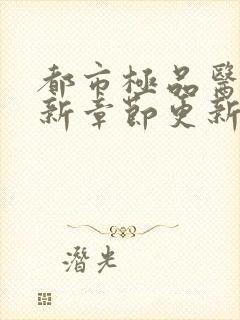 都市極品醫
新章節更新
潛光